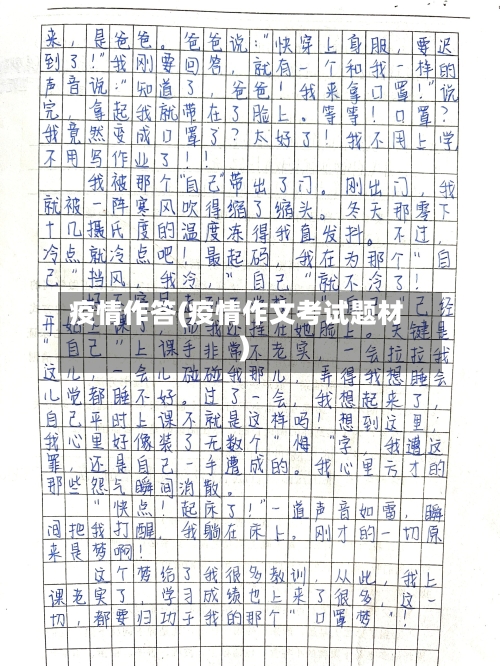 来，是爸爸。爸爸说："快穿上身服，要迟
到了！"我刚要回答，就有一个和我一样的
声音说："知道了，爸爸！我来拿口罩！"说
完，拿起我就带在了脸上。等等！口罩？
我竟然变成口罩了？太好了！我不用上学
不用写作业了！！
我被那个"自己"带出了门。刚出门，我
就被一阵寒风吹得缩了缩头。冬天那零下
十几摄氏度的温度冻得我直发抖。不过，
冷点就冷点吧！最起码，我在为那个"自
己"挡风，我冷，"自己"就不冷了！
疫情作答(疫情作文考试题材
)
己经
开 脸上。关键是
"自己"上课手非常不老实，一会拉拉我
这儿，一会儿碰碰我那儿，弄得我想睡会
儿觉都睡不好。过了一会，我想起来了，
自己平时上课不就是这样吗！想到这里，
我心里好像装了无数个"悔"字，我遭这
罪，还是自己一手遭成的。我心里方才的
那些怨气瞬间消散。
"快点！起床了！"一道声音如雷，瞬
间把我打醒，我躺在床上。刚才的一切原
来是梦啊！
这个梦给了我很多教训，从此，我上
课老实了，学习成绩也上来了很多，这一
切，都要归功于我的那个"口罩梦"！